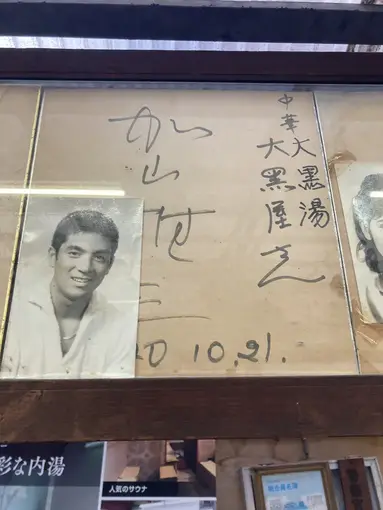 中華
大黒湯
大黒屋さん
加山雄三
10.21.
彩な内湯
人気のサウナ